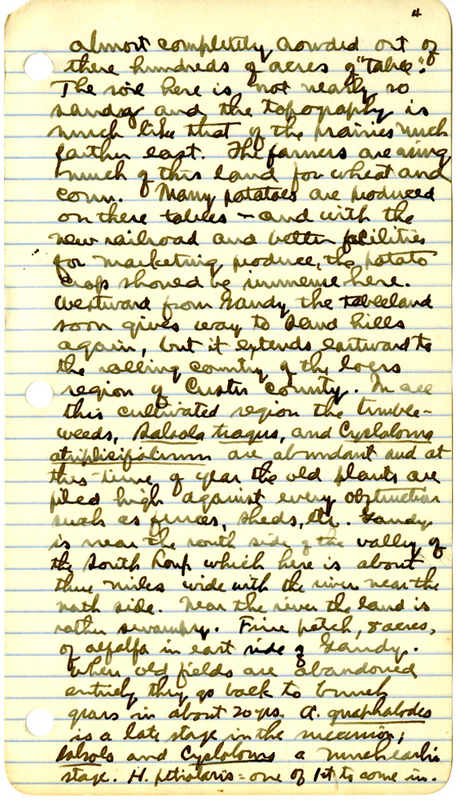 4
almost completely crowded out of
these hundreds of acres of "table".
The soil here is not nearly so
sandy and the topography is
much like that of the prairies much
farther east. The farmers are using
much of this land for wheat and
corn. Many potatoes are produced
on these tables - and with the
new railroad and better facilities
for marketing produce, the potato
crop should be immense here.
Westward from Gandy the tableland
soon gives way to Sand hills
again, but it extends eastward to
the rolling country of the loess
region of Custer County. In all
this cultivated region the tumble-
weeds, Salsola tragus, and Cycloloma
atriplicifolium are abundant and at
this time of year the old plants are
piled high against every obstruction
such as fences, sheds, etc. Gandy
is near the south side of the valley of
the South Loup which here is about
three miles wide with the river near the
north side. Near the river the land is
rather swampy. Fine patch, 8 acres,
of alfalfa in east side of Gandy.
When old fields are abandoned
entirely they go back to bunch
grass in about 20 yrs. A. gnaphalodes
is a late stage in the succession;
Salsola and Cycloloma a much earlier
stage. H. petiolaris = one of 1st to come in.